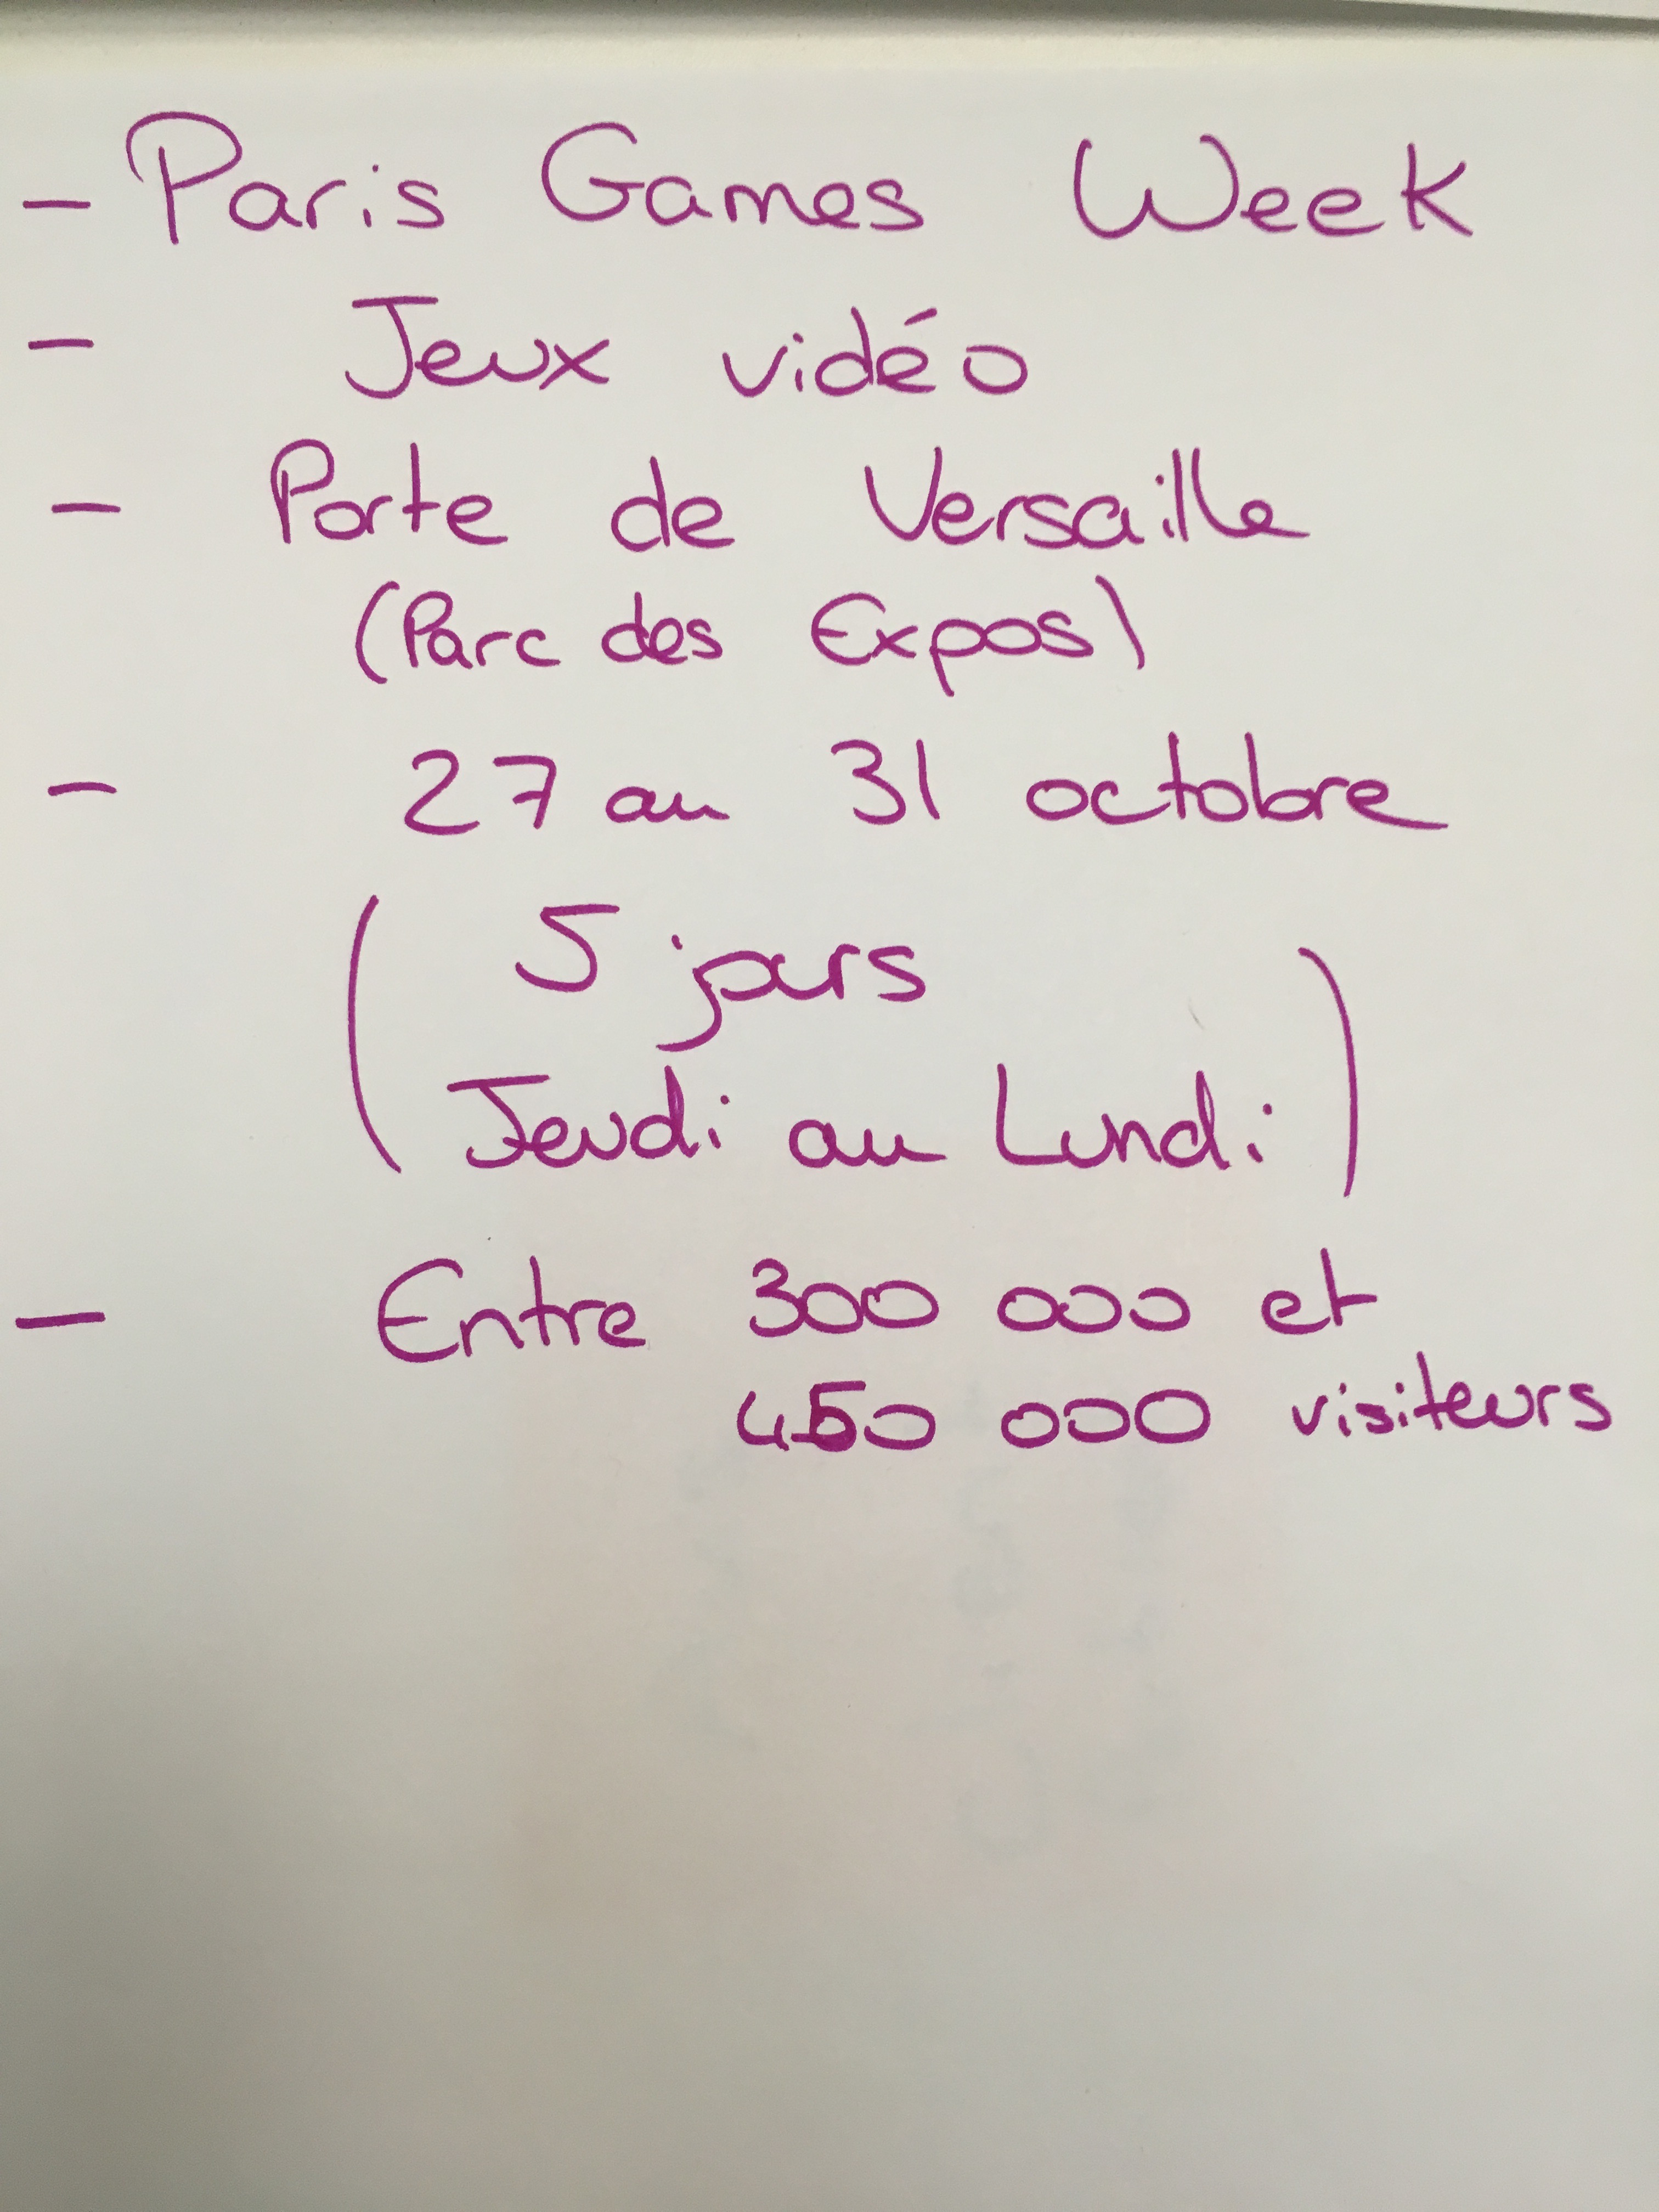 - Paris Games Week
- Jeux vidéo
- Porte de Versaille
(Parc des Expos)
- 27 au 31 octobre
( 5 jours
Jeudi au Lundi )
- Entre 300 000 et
450 000 visiteurs